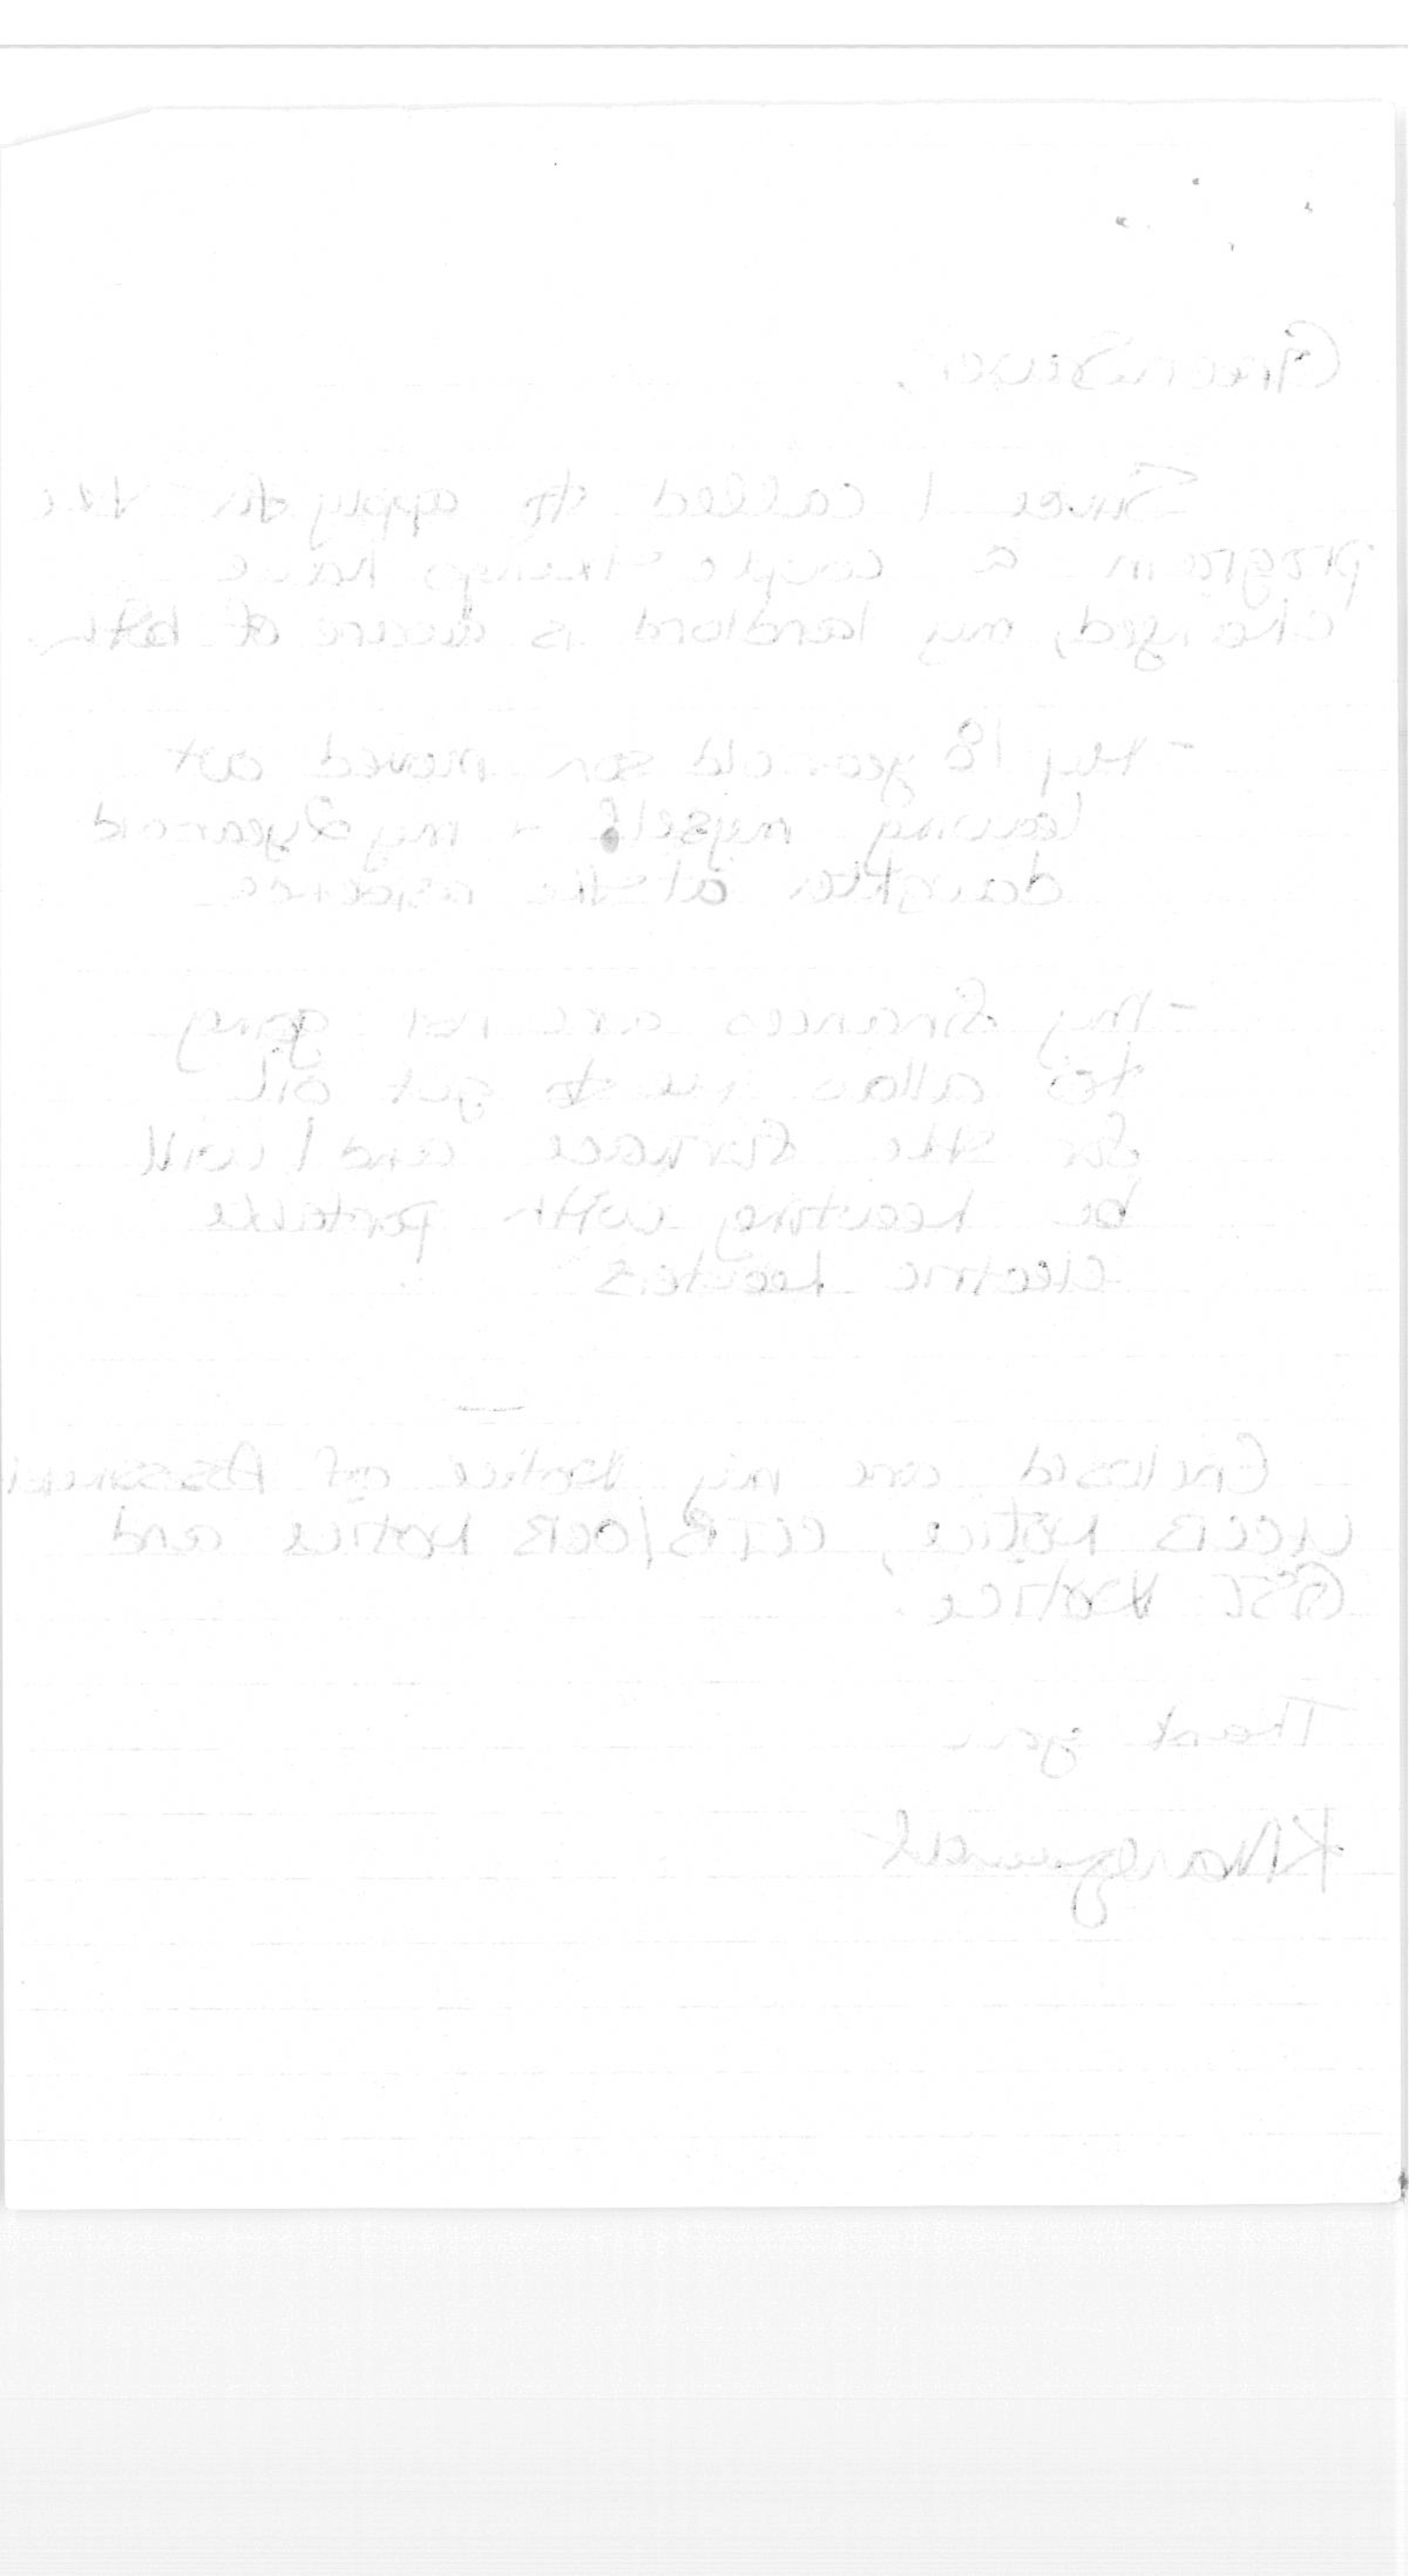 GreenSaver,
Since I called to apply for the
program a couple things have
changed, my landlord is aware of both.
- My 18 year old son moved out
leaving myself + my 2 year old
daughter at the
- My finances are not going
to allow me to get oil
for the furnace and I will
be heating with portable
electric heaters
Enclosed are my Notice of Assessment
UCCB Notice, CCTB/OCB Notice and
GST Notice.
Thank you